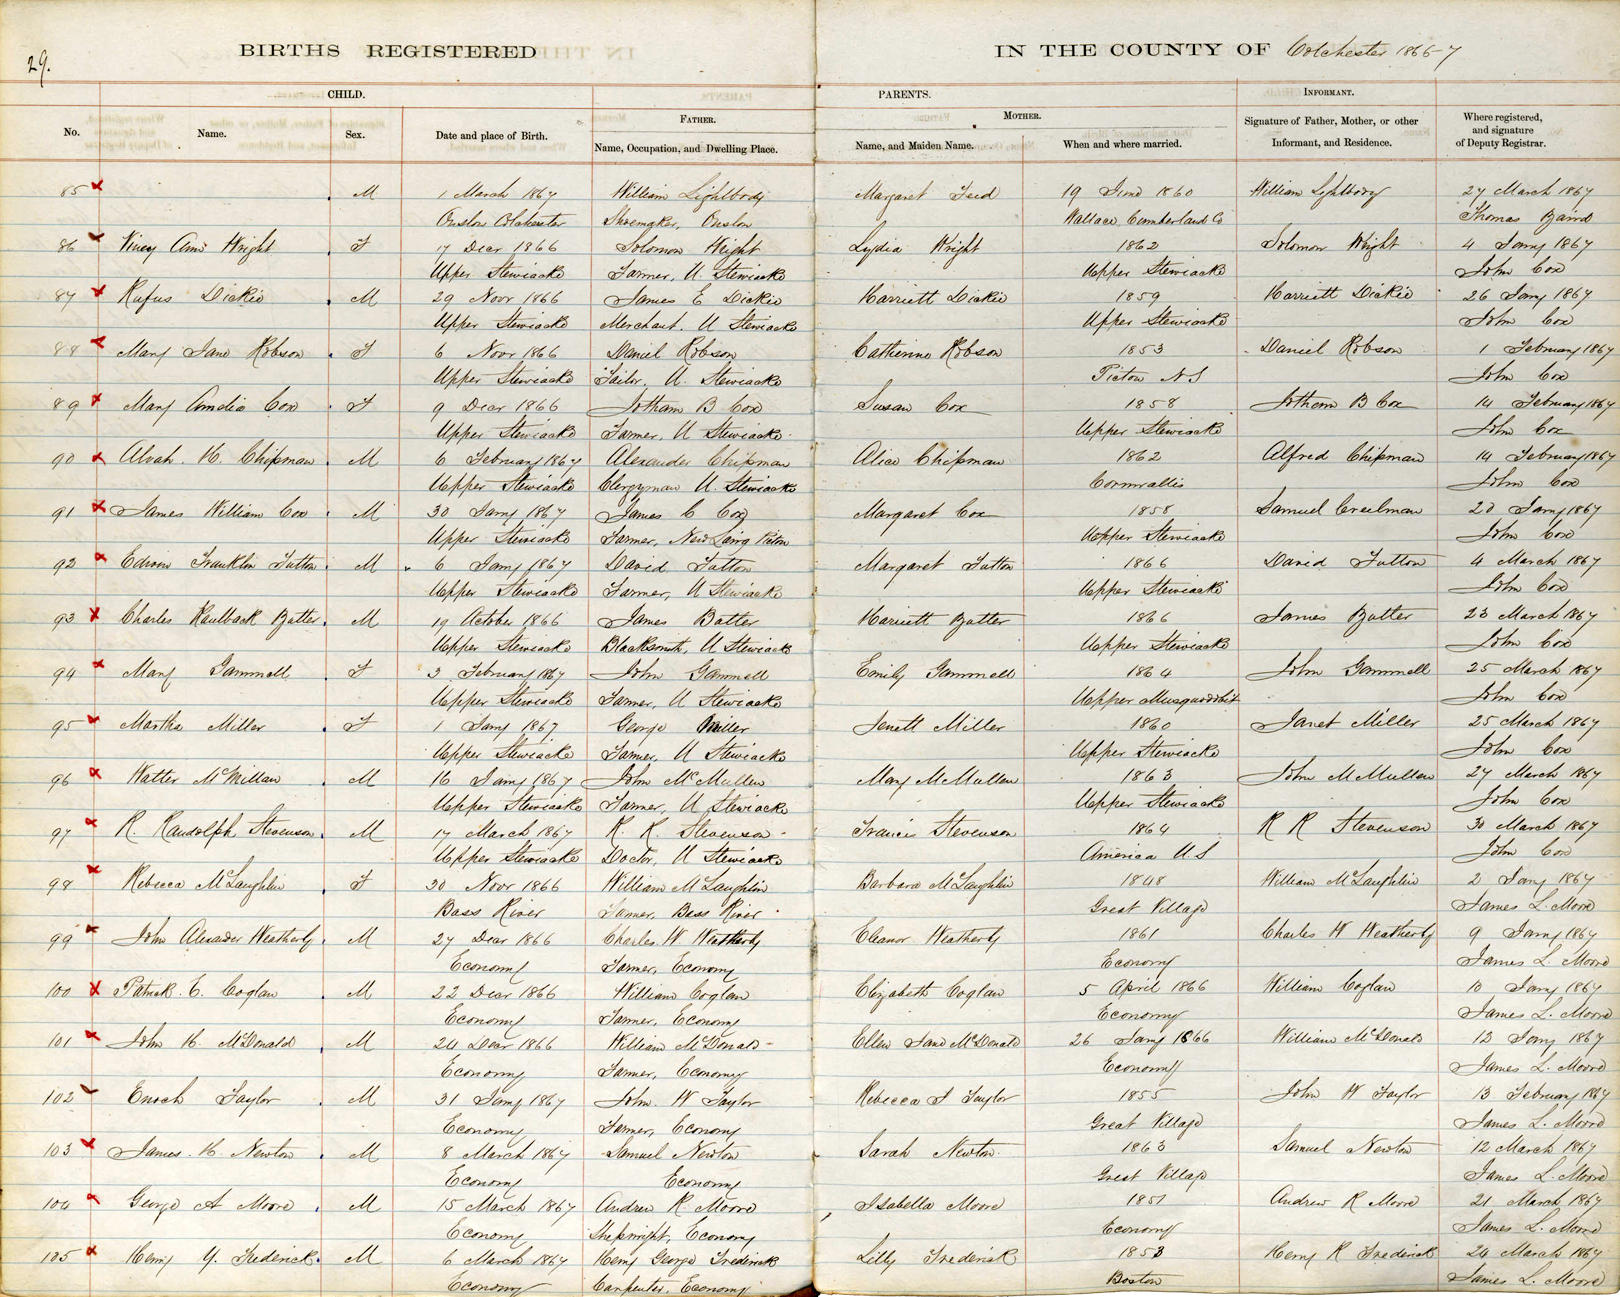 29.
BIRTHS REGISTERED IN THE COUNTY OF Colchester 1866-7
CHILD. PARENTS. INFORMANT.
FATHER. MOTHER.
No. Name. Sex. Date and place of Birth. Name, Occupation, and Dwelling Place. Name, and Maiden Name. When and where married. Signature of Father, Mother, or other Informant, and Residence. Where registered, and signature of Deputy Registrar.
85 M 1 March 1867 William Lightbody Margaret 19 June 1860 William Lightbody 27 March 1867
Onslow Colchester Shoemaker, Onslow Wallace Cumberland Co Thomas Baird
86 Ann Wright F 17 Decr 1866 Solomon Wright Lydia Wright 1862 Solomon Wright 4 Jany 1867
Upper Stewiacke Farmer, U. Stewiacke Upper Stewiacke John Cox
87 Rufus Dickie M 29 Novr 1866 James E Dickie Harriett Dickie 1859 Harriett Dickie 26 Jany 1867
Upper Stewiacke Merchant. U Stewiacke Upper Stewiacke John Cox
88 Mary Jane Robson F 6 Novr 1866 Daniel Robson Catherine Robson 1853 Daniel Robson 1 February 1867
Upper Stewiacke Tailor, U. Stewiacke Pictou N S John Cox
89 Mary Amelia Cox F 9 Decr 1866 Jotham B Cox Susan Cox 1858 Jotham B Cox 14 February 1867
Upper Stewiacke Farmer, U Stewiacke Upper Stewiacke John Cox
90 Alvah. H. Chipman M 6 February 1867 Alexander Chipman Alice Chipman 1862 Alfred Chipman 14 February 1867
Upper Stewiacke Clergyman U. Stewiacke Cornwallis John Cox
91 James William Cox M 30 Jany 1867 James C Cox Margaret Cox 1858 Samuel Creelman 20 Jany 1867
Upper Stewiacke Farmer, New Lairg Pictou Upper Stewiacke John Cox
92 Edwin Franklin Fulton M 6 Jany 1867 David Fulton Margaret Fulton 1866 David Fulton 4 March 1867
Upper Stewiacke Farmer, U Stewiacke Upper Stewiacke John Cox
93 Charles Kaulback Butter M 19 October 1866 James Butter Harriett Butter 1866 James Butter 23 March 1867
Upper Stewiacke Blacksmith, U Stewiacke Upper Stewiacke John Cox
94 Mary Gammell F 3 February 1867 John Gammell Emily Gammell 1864 John Gammell 25 March 1867
Upper Stewiacke Farmer, U Stewiacke Upper Musquodoboit John Cox
95 Martha Miller F 1 Jany 1867 George Miller Jenett Miller 1860 Janet Miller 25 March 1867
Upper Stewiacke Farmer, U Stewiacke Upper Stewiacke John Cox
96 Walter McMillan M 16 Jany 1867 John McMullen Mary McMullen 1863 John McMullen 27 March 1867
Upper Stewiacke Farmer, U Stewiacke Upper Stewiacke John Cox
97 R. Randolph Stevenson M 17 March 1867 R. R. Stevenson Francis Stevenson 1864 R R Stevenson 30 March 1867
Upper Stewiacke Doctor, U Stewiacke America U.S John Cox
98 Rebecca McLaughlin F 30 Novr 1866 William McLaughlin Barbara McLaughlin 1848 William McLaughlin 2 Jany 1867
Bass River Farmer, Bass River Great Village James L. Moore
99 John Alexander Weatherby M 27 Decr 1866 Charles W Weatherby Eleanor Weatherby 1861 Charles W Weatherby 9 Jany 1867
Economy Farmer, Economy Economy James L. Moore
100 Patrick. E. Coglan M 22 Decr 1866 William Coglan Elizabeth Coglan 5 April 1866 William Coglan 10 Jany 1867
Economy Farmer, Economy Economy James L. Moore
101 John H. McDonald M 24 Decr 1866 William McDonald Ellen Jane McDonald 26 Jany 1866 William McDonald 12 Jany 1867
Economy Farmer, Economy Economy James L. Moore
102 Enoch Taylor M 31 Jany 1867 John. W Taylor Rebecca J Taylor 1855 John W Taylor 13 February 1867
Economy Farmer, Economy Great Village James L. Moore
103 James. H. Newton M 8 March 1867 Samuel Newton Sarah Newton 1863 Samuel Newton 12 March 1867
Economy Economy Great Village James L. Moore
104 George A Moore M 15 March 1867 Andrew R Moore Isabella Moore 1851 Andrew R Moore 21 March 1867
Economy Shipwright, Economy Economy James L. Moore
105 Henry Y. Frederick M 6 March 1867 Henry George Frederick Lilly Frederick 1853 Henry R Frederick 24 March 1867
Economy Carpenter, Economy Boston James L. Moore